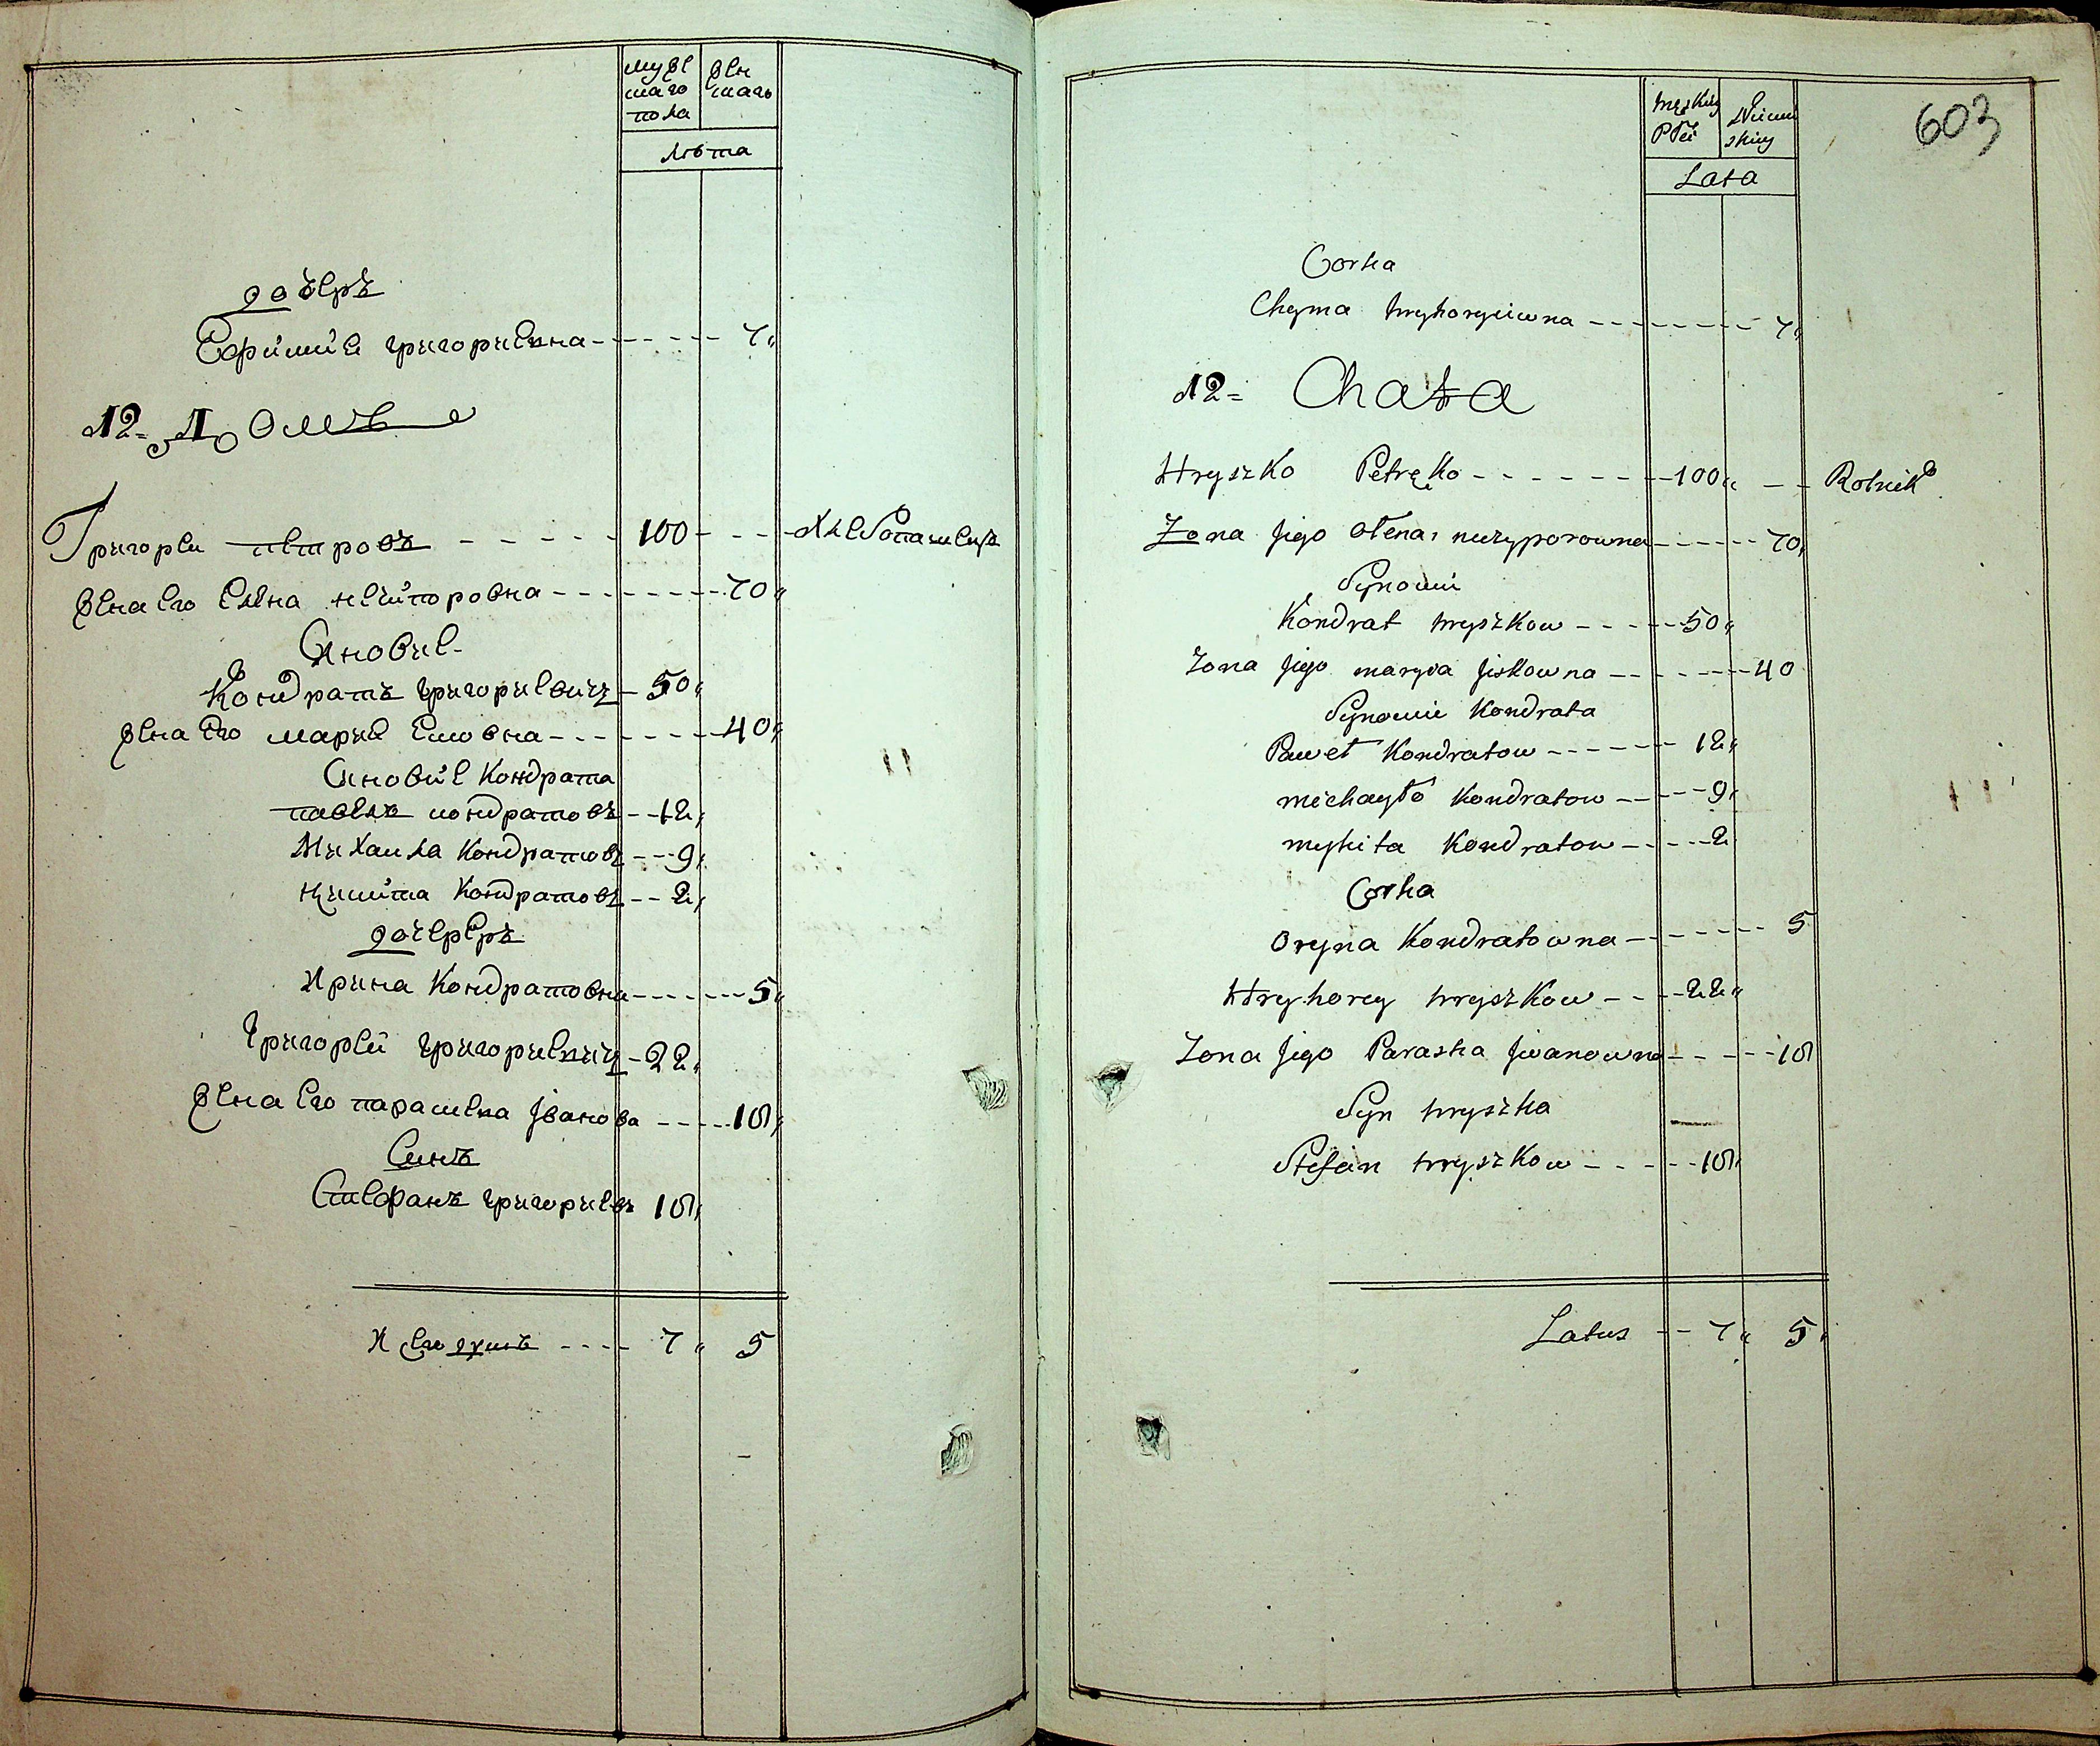 мужес
шаго
пола
жен
шаго
лѣта
дочеръ
Ефимия григориевна - - - - - - 7„
12= Домъ
Григори петровъ - - - - - 100 - - - Хлебопашецъ
жена его елена нечипоровна - - - - - - - 70„
Синовие
Кондратъ григориевичъ - 50„
жена его мария Есиовна - - - - - - - 40„
Синовие Кондрата
павелъ кондратовъ - - 12„
Михаила Кондратовъ - - - 9„
никита Кондратовъ - - 2„
дочереръ
Ирина Кондратовна - - - - - - 5„
григорей григориевичъ - 22„
жена его парасковка Iванова - - - - 18„
Синъ
Стефанъ григориевъ 18„
7 „ 5
męskiey
Płci
Zienskiey
Lata
603
Corka
Chyma hryhoryiowna - - - - - - - - 7„
12= Chata
Hryszko Petręko - - - - - - - 100„ - - Rolnik
Zona jego ołena niczyporowna - - - - - 70„
Synowie
Kondrat hryszkow - - - - 50„
Zona jego maryia jiskowna - - - - - - 40
Synowie Kondrata
Paweł Kondratow - - - - - - 12„
michayło kondratow - - - - - 9„
mykita Kondratow - - - - - 2
Corka
oryna Kondratowna - - - - - - - 5
Hryhorey hryszkow - - - 22„
Zona jego Paraska jwanowna - - - - 18
Syn hryszka
Stefan hryszkow - - - - - 18„
Latus - - 7„ 5„